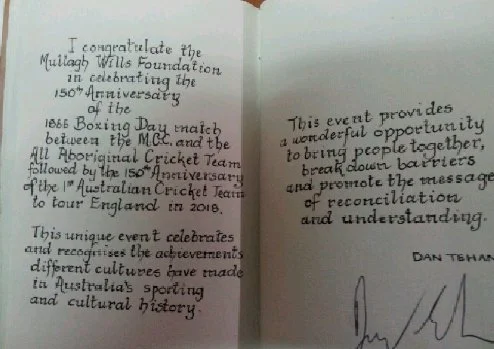 I congratulate the
Mullagh Wills Foundation
in celebrating the
150th Anniversary
of the
1866 Boxing Day match
between the M.C.C. and the
All Aboriginal Cricket Team
followed by the 150th Anniversary
of the 1st Australian Cricket Team
to tour England in 2018.
This unique event celebrates
and recognises the achievements
different cultures have made
in Australia's sporting
and cultural history.
This event provides
a wonderful opportunity
to bring people together,
break down barriers
and promote the message
of reconciliation
and understanding.
DAN TEHAN